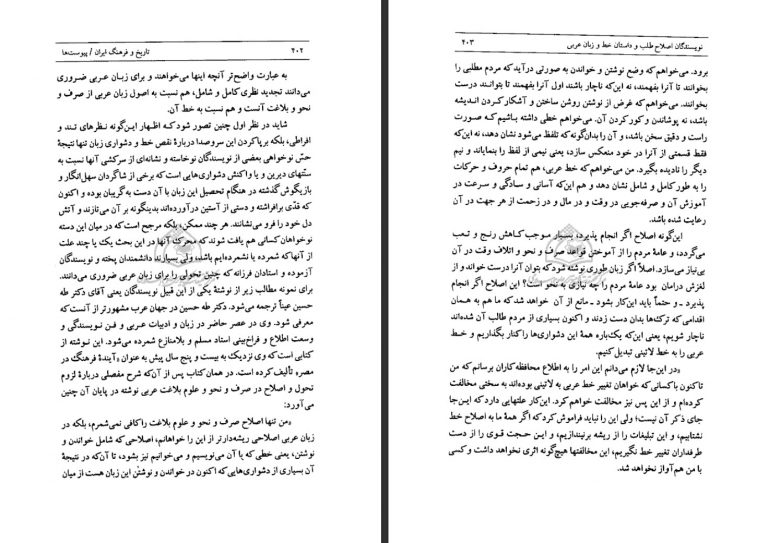 ۴۰۲ تاریخ و فرهنگ ایران / پیوست‌ها
به عبارت واضح‌تر آنچه اینها می‌خواهند و برای زبان عربی ضروری
می‌دانند تجدید نظری کامل و شامل، هم نسبت به اصول زبان عربی از صرف و
نحو و بلاغت آنست و هم نسبت به خط آن.
شاید در نظر اول چنین تصور شود که اظهار این‌گونه نظرهای تند و
افراطی، بلکه برپا کردن این سروصدا دربارهٔ نقص خط و دشواری زبان تنها نتیجهٔ
حسّ نوخواهی بعضی از نویسندگان نوخاسته و نشانه‌ای از سرکشی آنها نسبت به
سنّتهای دیرین و یا واکنش دشواری‌هایی است که برخی از شاگردان سهل‌انگار و
بازیگوش گذشته در هنگام تحصیل این زبان با آن دست به گریبان بوده و اکنون
که قدّی برافراشته و دستی از آستین درآورده‌اند بدینگونه بر آن می‌تازند و آتش
دل خود را فرو می‌نشانند. هر چند ممکن، بلکه مرجح است که در میان این دسته
نوخواهان کسانی هم یافت شوند که محرک آنها در این بحث یک یا چند علت
از آنها که شمرده یا نشمرده‌ایم باشد، ولی بسیارند دانشمندان پخته و نویسندگان
آزموده و استادان فرزانه که چنین تحولی را برای زبان عربی ضروری می‌دانند.
برای نمونه مطالب زیر از نوشتهٔ یکی از این قبیل نویسندگان یعنی آقای دکتر طه
حسین عیناً ترجمه می‌شود. دکتر طه حسین در جهان عرب مشهورتر از آنست که
معرفی شود. وی در عصر حاضر در زبان و ادبیات عربی و فن نویسندگی و
وسعت اطلاع و فراخ‌بینی استاد مسلم و بلامنازع شمرده می‌شود. این نوشته از
کتابی است که وی نزدیک به بیست و پنج سال پیش به عنوان «آیندهٔ فرهنگ در
مصر» تألیف کرده است. در همان کتاب پس از آن‌که شرح مفصلی دربارهٔ لزوم
تحول و اصلاح در صرف و نحو و علوم بلاغت عربی نوشته در پایان آن چنین
می‌آورد:
«من تنها اصلاح صرف و نحو و علوم بلاغت را کافی نمی‌شمرم، بلکه در
زبان عربی اصلاحی ریشه‌دارتر از این را خواهانم، اصلاحی که شامل خواندن و
نوشتن، یعنی خطی که با آن می‌نویسیم و می‌خوانیم نیز بشود، تا آن‌که در نتیجهٔ
آن بسیاری از دشواری‌هایی که اکنون در خواندن و نوشتن این زبان هست از میان
نویسندگان اصلاح طلب و داستان خط و زبان عربی ۴۰۳
برود. می‌خواهم که وضع نوشتن و خواندن به صورتی درآید که مردم مطلبی را
بخوانند تا آنرا بفهمند، نه این‌که ناچار باشند اول آنرا بفهمند تا بتوانند درست
بخوانند. می‌خواهم که غرض از نوشتن روشن ساختن و آشکار کردن اندیشه
باشد، نه پوشاندن و کور کردن آن. می‌خواهم خطی داشته باشیم که صورت
راست و دقیق سخن باشد، و آن را بدان‌گونه که تلفظ می‌شود نشان دهد، نه این‌که
فقط قسمتی از آنرا در خود منعکس سازد، یعنی نیمی از لفظ را بنمایاند و نیم
دیگر را نادیده بگیرد. من می‌خواهم که خط عربی، هم تمام حروف و حرکات
را به طور کامل و شامل نشان دهد و هم این‌که آسانی و سادگی و سرعت در
آموزش آن و صرفه‌جویی در وقت و در مال و در زحمت از هر جهت در آن
رعایت شده باشد.
این‌گونه اصلاح اگر انجام پذیرد، بسیار موجب کاهش رنج و تعب
می‌گردد، و عامهٔ مردم را از آموختن قواعد صرف و نحو و اتلاف وقت در آن
بی‌نیاز می‌سازد. اصلاً اگر زبان طوری نوشته شود که بتوان آنرا درست خواند و از
لغزش درامان بود عامهٔ مردم را چه نیازی به نحو است؟ این اصلاح اگر انجام
پذیرد ـ و حتماً باید این‌کار بشود ـ مانع از آن خواهد شد که ما هم به همان
اقدامی که ترک‌ها بدان دست زدند و اکنون بسیاری از مردم طالب آن شده‌اند
ناچار شویم، یعنی این‌که یک‌باره همهٔ این دشواری‌ها را کنار بگذاریم و خط
عربی را به خط لاتینی تبدیل کنیم.
«در این‌جا لازم می‌دانم این امر را به اطلاع محافظه‌کاران برسانم که من
تاکنون با کسانی که خواهان تغییر خط عربی به لاتینی بوده‌اند به سختی مخالفت
کرده‌ام و از این پس نیز مخالفت خواهم کرد. این‌کار علتهایی دارد که این‌جا
جای ذکر آن نیست؛ ولی این را نباید فراموش کرد که اگر همهٔ ما به اصلاح خط
نشتابیم، و این تبلیغات را از ریشه برنیندازیم، و این حجت قوی را از دست
طرفداران تغییر خط نگیریم، این مخالفتها هیچ‌گونه اثری نخواهد داشت و کسی
با من هم‌آواز نخواهد شد.